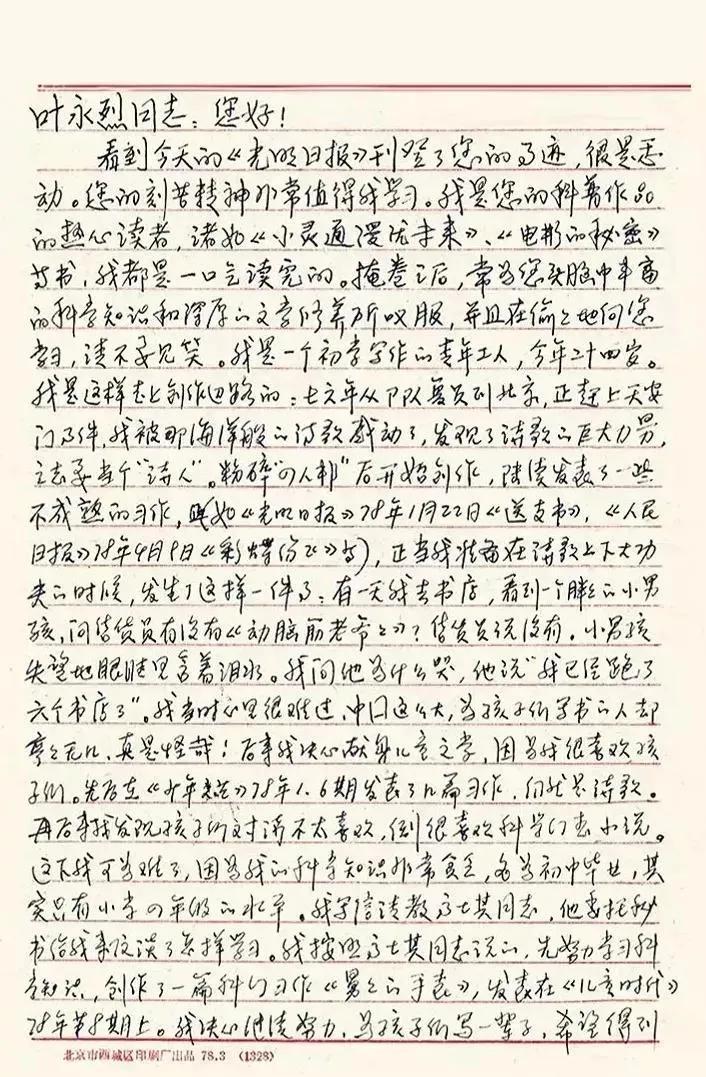 叶永烈同志：您好！
看到今天的《光明日报》刊登了您的事迹，很是感
动。您的刻苦精神非常值得我学习。我是您的科普作品
的热心读者，诸如《小灵通漫游未来》、《电影的秘密》
等书，我都是一口气读完的。掩卷之后，常为您头脑中丰富
的科学知识和深厚的文学修养所叹服，并且在偷偷地向您
学习，请不要见笑。我是一个初学写作的青年工人，今年二十四岁。
我是这样走上创作道路的：七六年从部队复员到北京，正赶上天安
门事件，我被那海洋般的诗歌感动了，发现了诗歌的巨大力量，
立志要当个“诗人”。粉碎“四人帮”后开始创作，陆续发表了一些
不成熟的习作，（如《光明日报》78年1月22日《送支书》，《人民
日报》78年4月9日《彩蝶纷飞》等），正当我准备在诗歌上下大功
夫的时候，发生了这样一件事：有一天我去书店，看到一个胖胖的小男
孩，问售货员有没有《动脑筋爷爷》？售货员说没有。小男孩
失望地眼睛里含着泪水。我问他为什么哭，他说“我已经跑了
六个书店了”。我当时心里很难过，中国这么大，为孩子们写书的人却
寥寥无几，真是怪哉！后来我决心献身儿童文学，因为我很喜欢孩
子们。先后在《少年文艺》78年1.6期发表了几篇习作，仍然是诗歌。
再后来我发现孩子们对诗不太喜欢，倒很喜欢科学幻想小说。
这下我可为难了，因为我的科学知识非常贫乏，名为初中毕业，其
实只有小学四年级的水平。我写信请教高士其同志，他委托秘
书给我来信谈了怎样学习。我按照高士其同志说的，先努力学习科
学知识，创作了一篇科幻习作《冀冀的手表》，发表在《儿童时代》
78年第8期上。我决心继续努力，为孩子们写一辈子，希望得到
北京市西城区印刷厂出品 78.3 (1328)